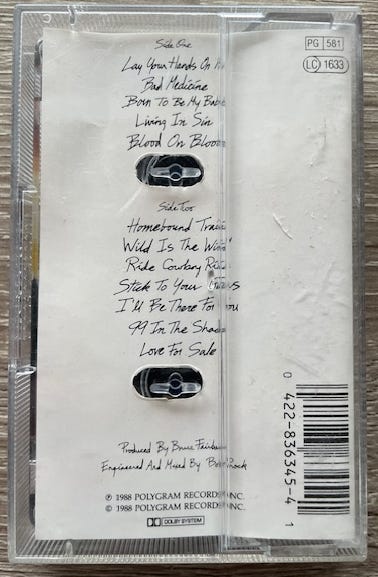 Side One
Lay Your Hands On
Bad Medicine
Born To Be My Babe
Living In Sin
Blood On Blood
Side Two
Homebound Train
Wild Is The Wind
Ride Cowboy Ride
Stick To Your Guns
I'll Be There For You
99 In The Shade
Love For Sale
Produced By Bruce Fairbairn
Engineered And Mixed By Bob Rock
℗ 1988 POLYGRAM RECORDS INC.
© 1988 POLYGRAM RECORDS INC.
DOLBY SYSTEM
PG 581
LC 1633
0 422-836345-4 1